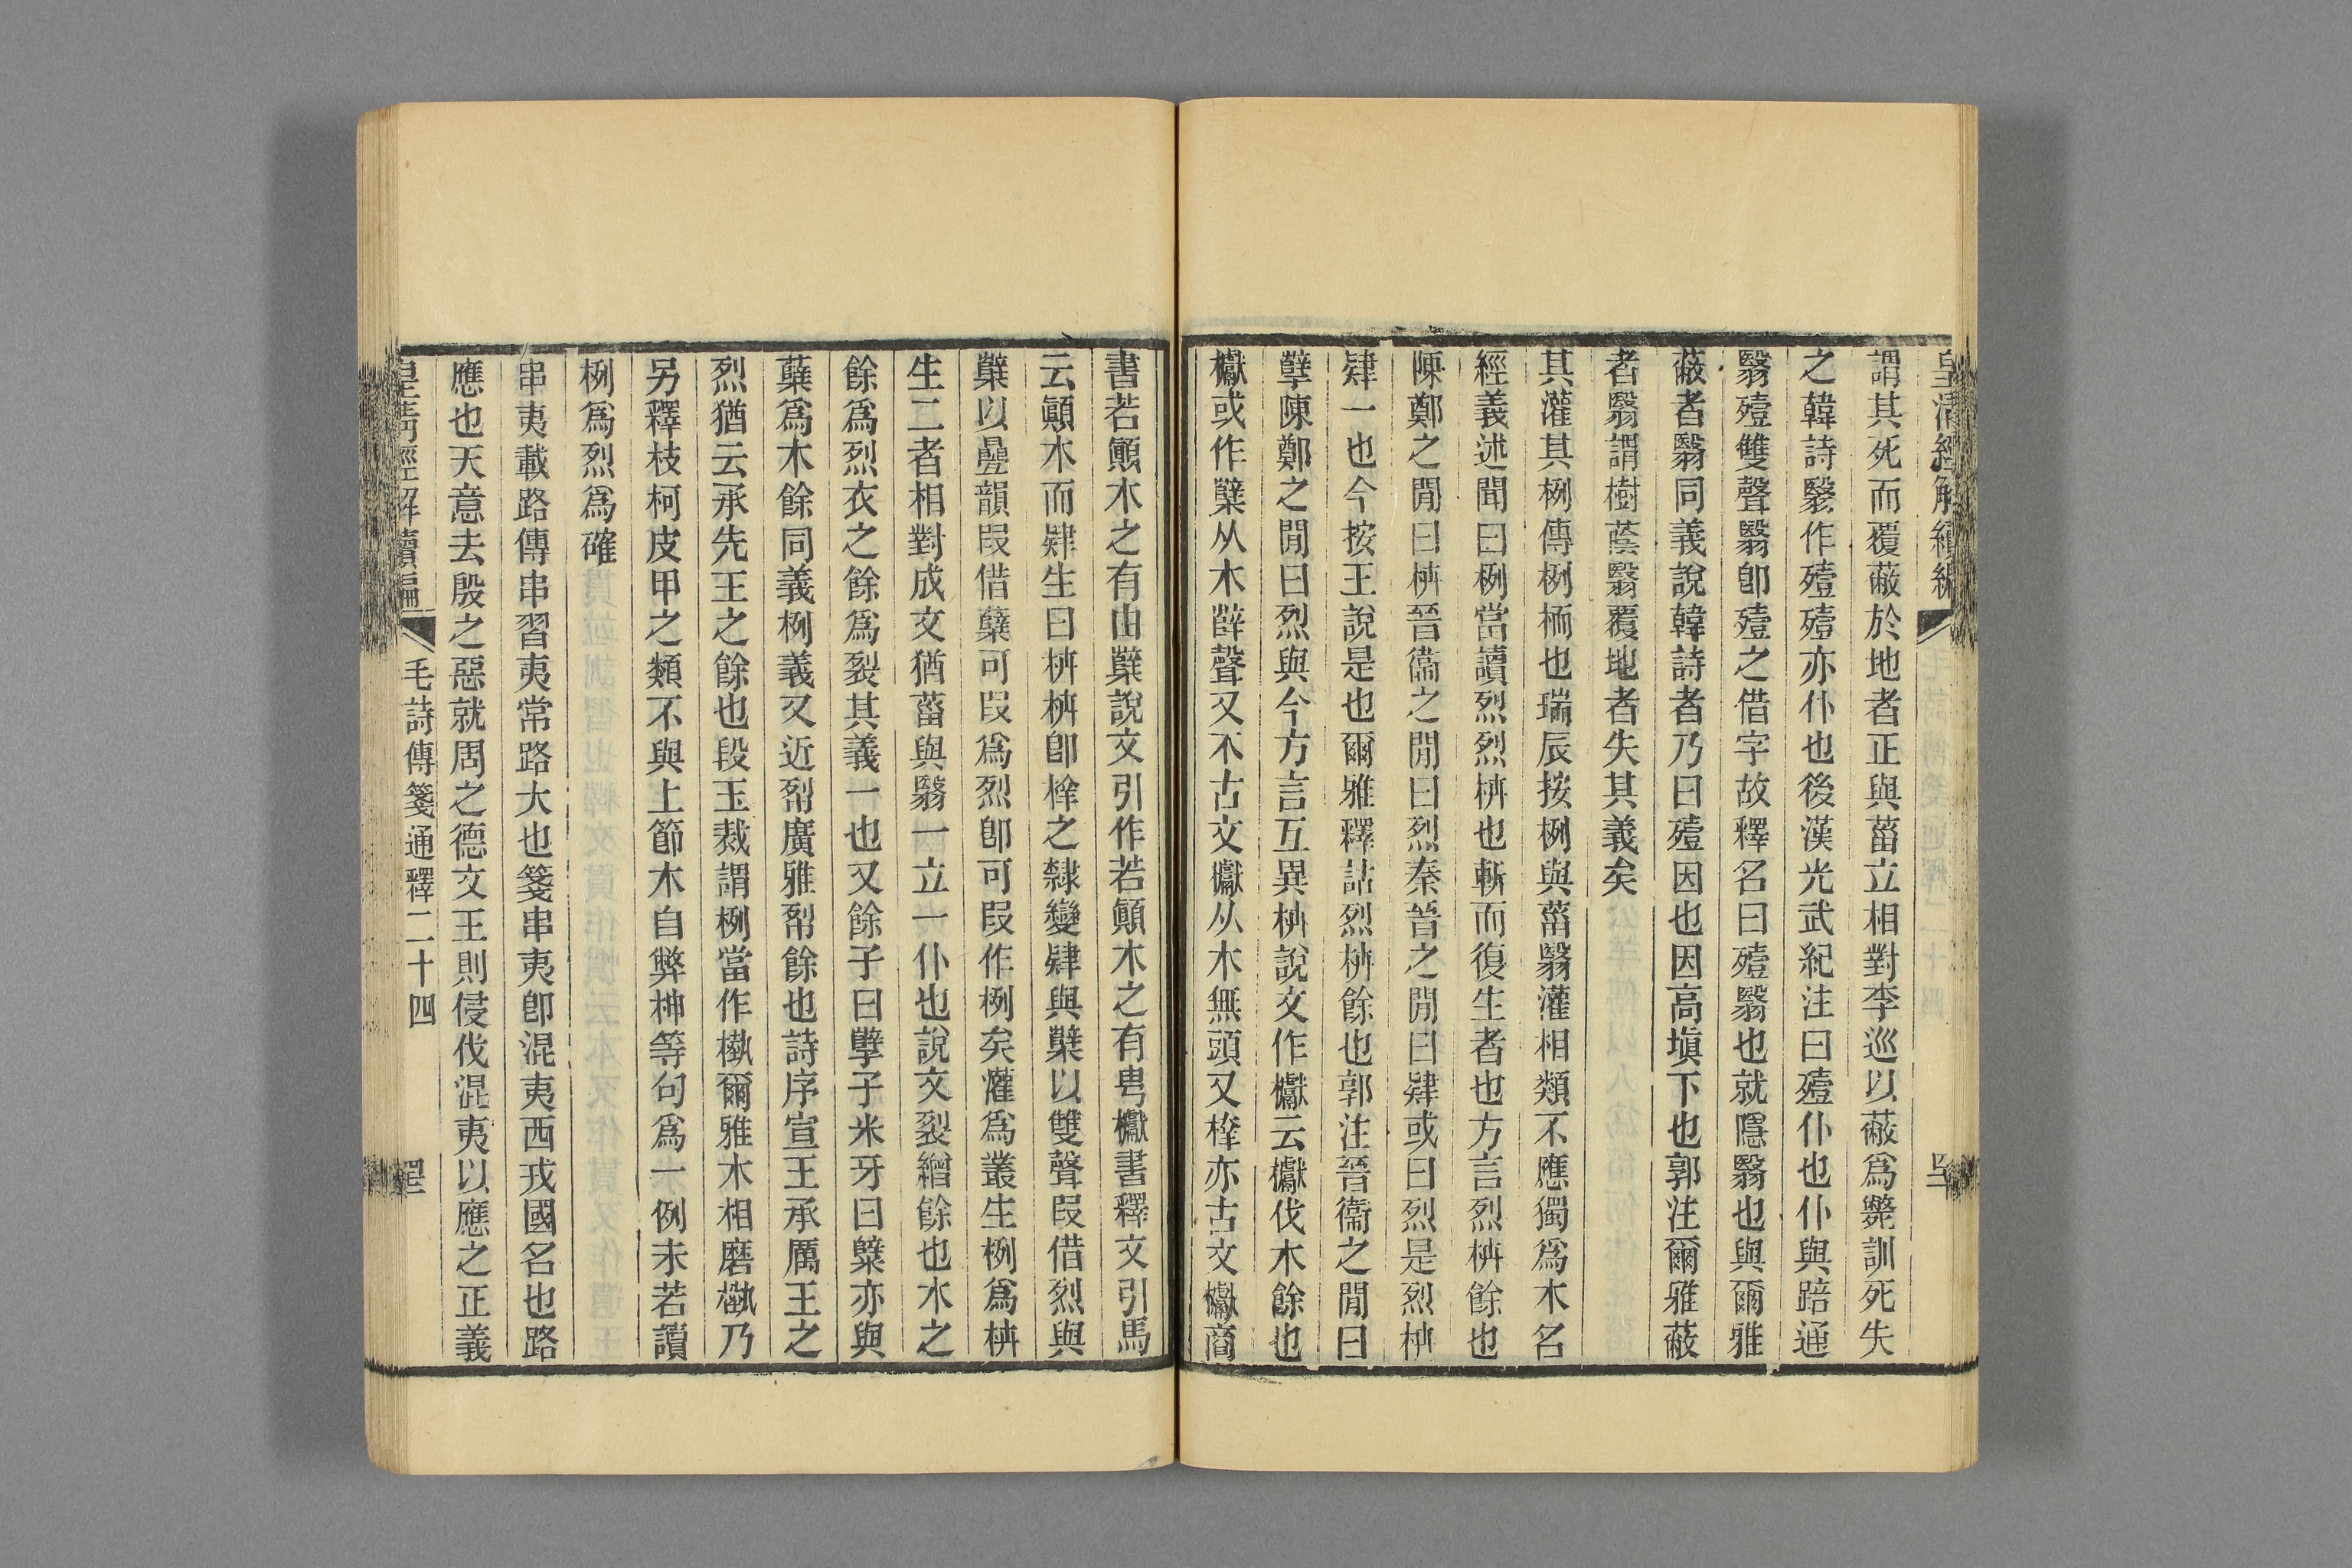 皇清經解續編
謂其死而覆蔽於地者正與菑立相對李巡以蔽爲斃訓死失
之韓詩翳作殪殪亦仆也後漢光武紀注曰殪仆也仆與踣通
翳殪雙聲翳卽殪之借字故釋名曰殪翳也就隱翳也與爾雅
蔽者翳同義說韓詩者乃曰殪因也因高塡下也郭注爾雅蔽
者翳謂樹蔭翳覆地者失其義矣
其灌其栵傳栵栭也瑞辰按栵與菑翳灌相類不應獨爲木名
經義述聞曰栵當讀烈烈枿也斬而復生者也方言烈枿餘也
陳鄭之閒曰枿晉衞之閒曰烈秦晉之閒曰肄或曰烈是烈枿
肄一也今按王說是也爾雅釋詁烈枿餘也郭注晉衞之閒曰
孽陳鄭之閒曰烈與今方言互異枿說文作櫱云櫱伐木餘也
櫱或作蘖从木薛聲又不古文櫱从木無頭又㮆亦古文櫱商
書若顚木之有由蘖說文引作若顚木之有㽕櫱書釋文引馬
云顚木而肄生曰枿枿卽㮆之隸變肄與蘖以雙聲叚借烈與
蘖以疊韻叚借蘖可叚爲烈卽可叚作栵矣灌爲叢生栵爲枿
生二者相對成文猶菑與翳一立一仆也說文裂繒餘也木之
餘爲烈衣之餘爲裂其義一也又餘子曰孽子米牙曰糱亦與
蘖爲木餘同義栵義又近㓟廣雅㓟餘也詩序宣王承厲王之
烈猶云承先王之餘也段玉裁謂栵當作槸爾雅木相磨槸乃
另釋枝柯皮甲之類不與上節木自獘柛等句爲一例未若讀
栵爲烈爲確
串夷載路傳串習夷常路大也箋串夷卽混夷西戎國名也路
應也天意去殷之惡就周之德文王則侵伐混夷以應之正義
皇淸經解續編
毛詩傳箋通釋二十四